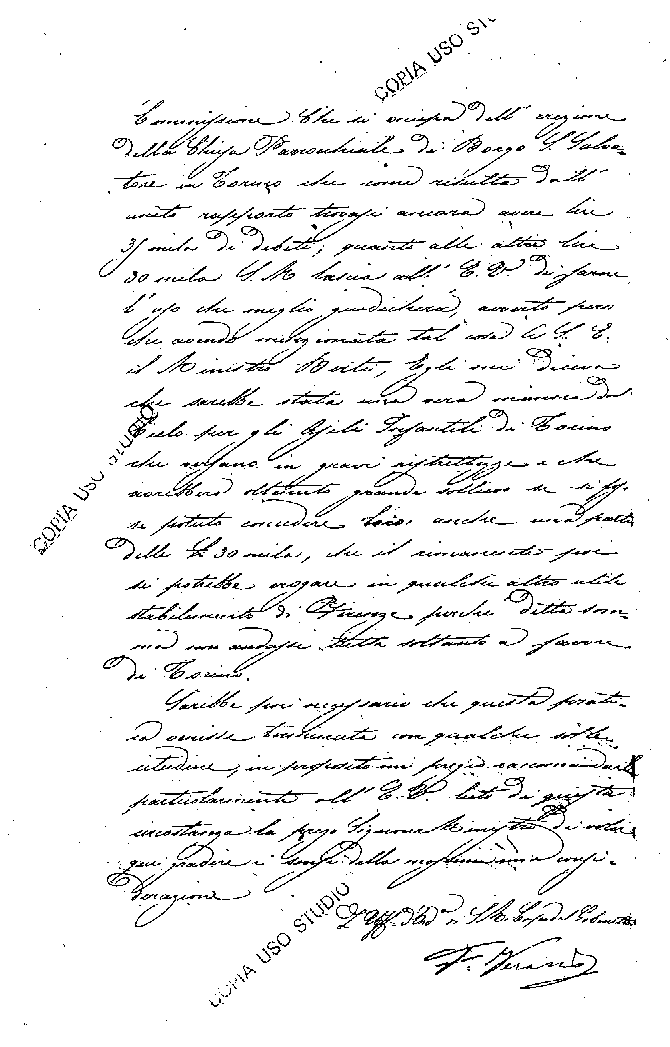 COPIA USO STUDIO
Commissione che si occupa dell' erezione
della Chiesa Parrocchiale di Borgo S Salva-
tore in Torino che come risulta dall'
unito rapporto trovasi ancora avere lire
35 mila di debiti; quanto alle altre lire
30 mila S. M. lascia all' E. V. di farne
l'uso che meglio giudicherà, avverto però
che avendo menzionata tal cosa a S. E.
il Ministro Berti, Egli mi diceva
che sarebbe stata una vera manna del
Cielo per gli Asili Infantili di Torino
che versano in gravi ristrettezze e che
avrebbero ottenuto grande sollievo se si fos-
se potuto concedere loro anche una parte
COPIA USO STUDIO
delle £ 30 mila, che il rimanente poi
si potrebbe erogare in qualche altro utile
stabilimento di Firenze perché detta som-
ma non andasse tutta soltanto a favore
di Torino.
Sarebbe poi necessario che questa prati-
ca venisse terminata con qualche solle-
citudine, in proposito mi pregio raccomandarla
particolarmente all' E. V. lieto di questa
circostanza la prego Signor Ministro di voler
gradire i sensi della massima mia consi-
derazione
L'Uff. d'Ord.a di S.M. Capo del Gabinetto
COPIA USO STUDIO